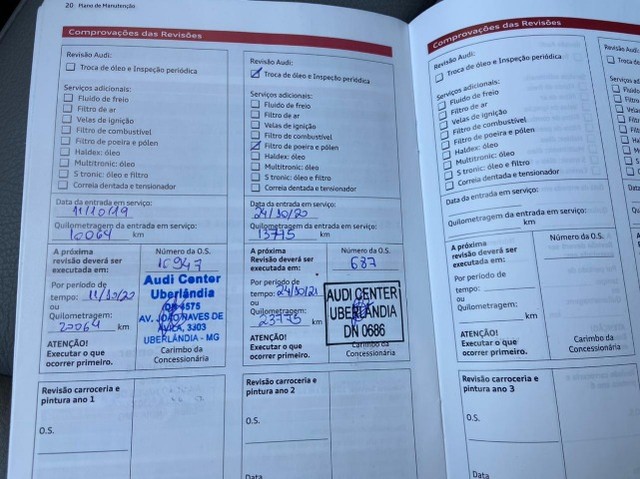 20 Plano de Manutenção
Comprovações das Revisões
Revisão Audi:
Troca de óleo e Inspeção periódica
Serviços adicionais:
Fluido de freio
Filtro de ar
Velas de ignição
Filtro de combustível
Filtro de poeira e pólen
Haldex: óleo
Multitronic: óleo
S tronic: óleo e filtro
Correia dentada e tensionador
Data da entrada em serviço:
11/10/19
Quilometragem da entrada em serviço:
10064 km
A próxima
revisão deverá ser
executada em:
Número da O.S.
16947
Por período de
tempo: 11/10/20
ou
Quilometragem:
20064 km
ATENÇÃO!
Executar o que
ocorrer primeiro.
Audi Center
Uberlândia
DN 6575
AV. JOÃO NAVES DE
ÁVILA, 3303
UBERLÂNDIA - MG
Carimbo da
Concessionária
Revisão carroceria e
pintura ano 1
O.S.
Revisão Audi:
Troca de óleo e Inspeção periódica
Serviços adicionais:
Fluido de freio
Filtro de ar
Velas de ignição
Filtro de combustível
Filtro de poeira e pólen
Haldex: óleo
Multitronic: óleo
S tronic: óleo e filtro
Correia dentada e tensionador
Data da entrada em serviço:
24/10/20
Quilometragem da entrada em serviço:
13775 km
A próxima
Revisão deverá ser
executada em:
Número da O.S.
687
Por período de
tempo: 24/10/21
ou
Quilometragem:
23775 km
ATENÇÃO!
Executar o que
ocorrer primeiro.
AUDI CENTER
UBERLÂNDIA
DN 0686
Carimbo da
Concessionária
Revisão carroceria e
pintura ano 2
O.S.
Data
Comprovações das Revisões
Revisão Audi:
Troca de óleo e Inspeção periódica
Serviços adicionais:
Fluido de freio
Filtro de ar
Velas de ignição
Filtro de combustível
Filtro de poeira e pólen
Haldex: óleo
Multitronic: óleo
S tronic: óleo e filtro
Correia dentada e tensionador
Data da entrada em serviço:
Quilometragem da entrada em serviço:
km
A próxima
revisão deverá ser
executada em:
Número da O.S.
Por período de
tempo:
ou
Quilometragem:
km
ATENÇÃO!
Executar o que
ocorrer primeiro.
Carimbo da
Concessionária
Revisão carroceria e
pintura ano 3
O.S.
Data